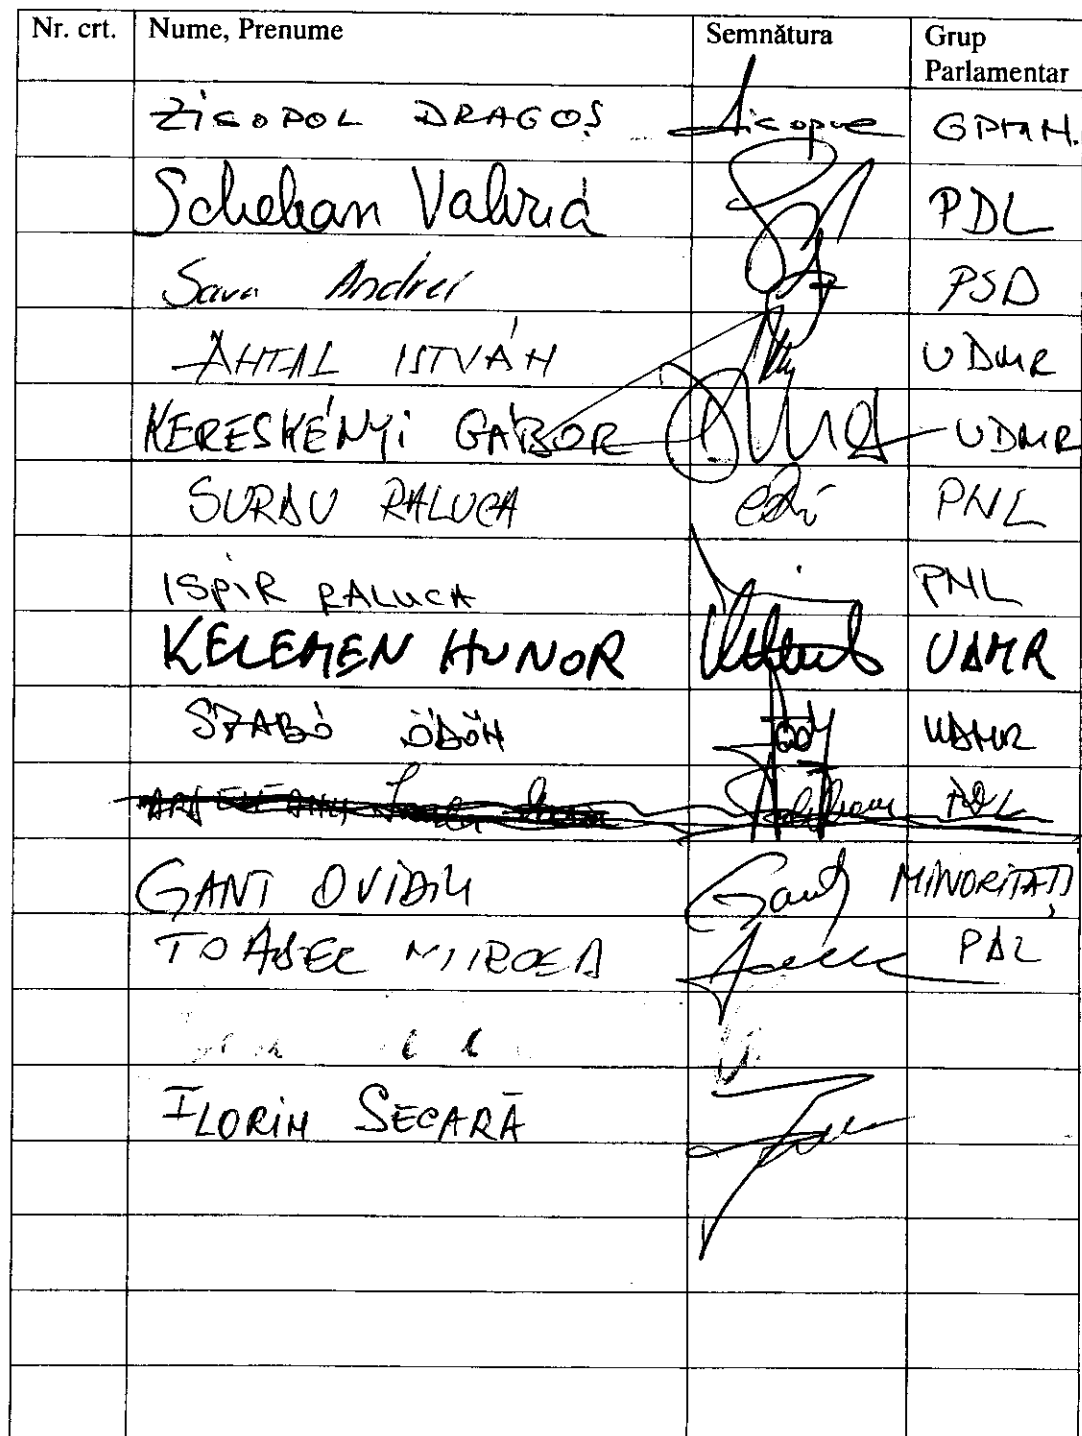 Nr. crt. Nume, Prenume Semnătura Grup Parlamentar
ZICOPOL DRAGOȘ Zicopol GPMN.
Schelean Valeria PDL
Sava Andrei PSD
ANTAL ISTVÁN UDMR
KERESKÉNYI GÁBOR UDMR
SURDU RALUCA PNL
ISPIR RALUCA PNL
KELEMEN HUNOR UDMR
SZABÓ ÖDÖN UDMR
PDL
GANT OVIDIU Gant MINORITĂȚI
TOADER MIRCEA PDL
FLORIN SECARĂ